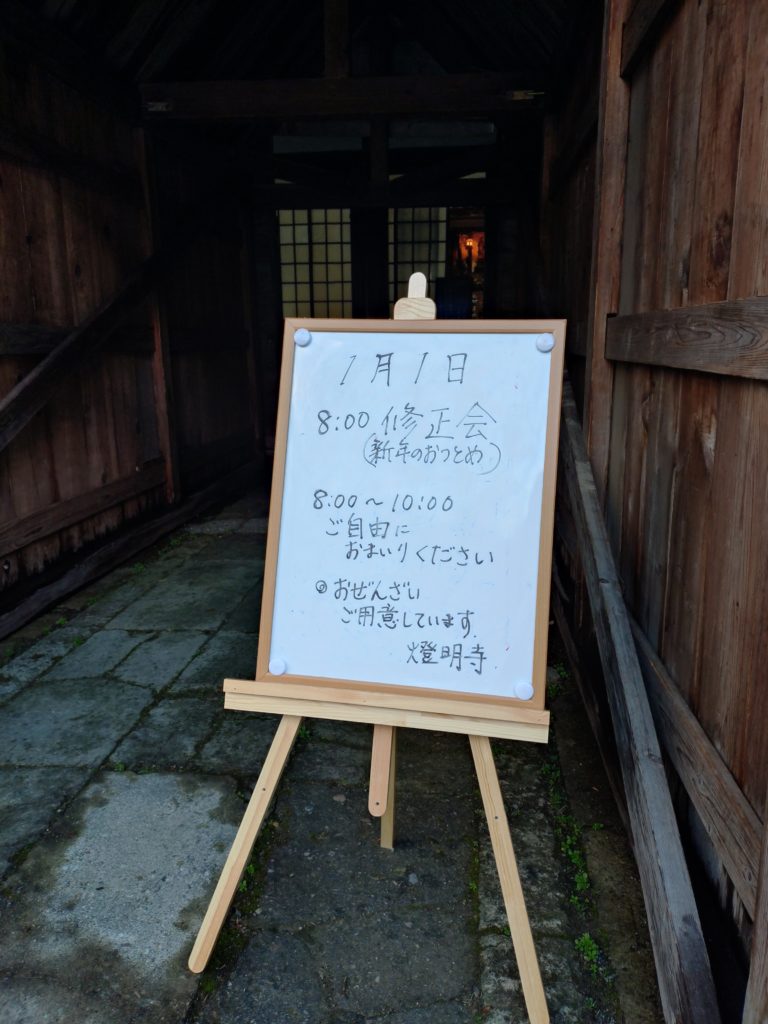 1月1日
8:00 修正会
(新年のおつとめ)
8:00〜10:00
ご自由に
おまいりください
◎おぜんざい
ご用意しています.
燈明寺